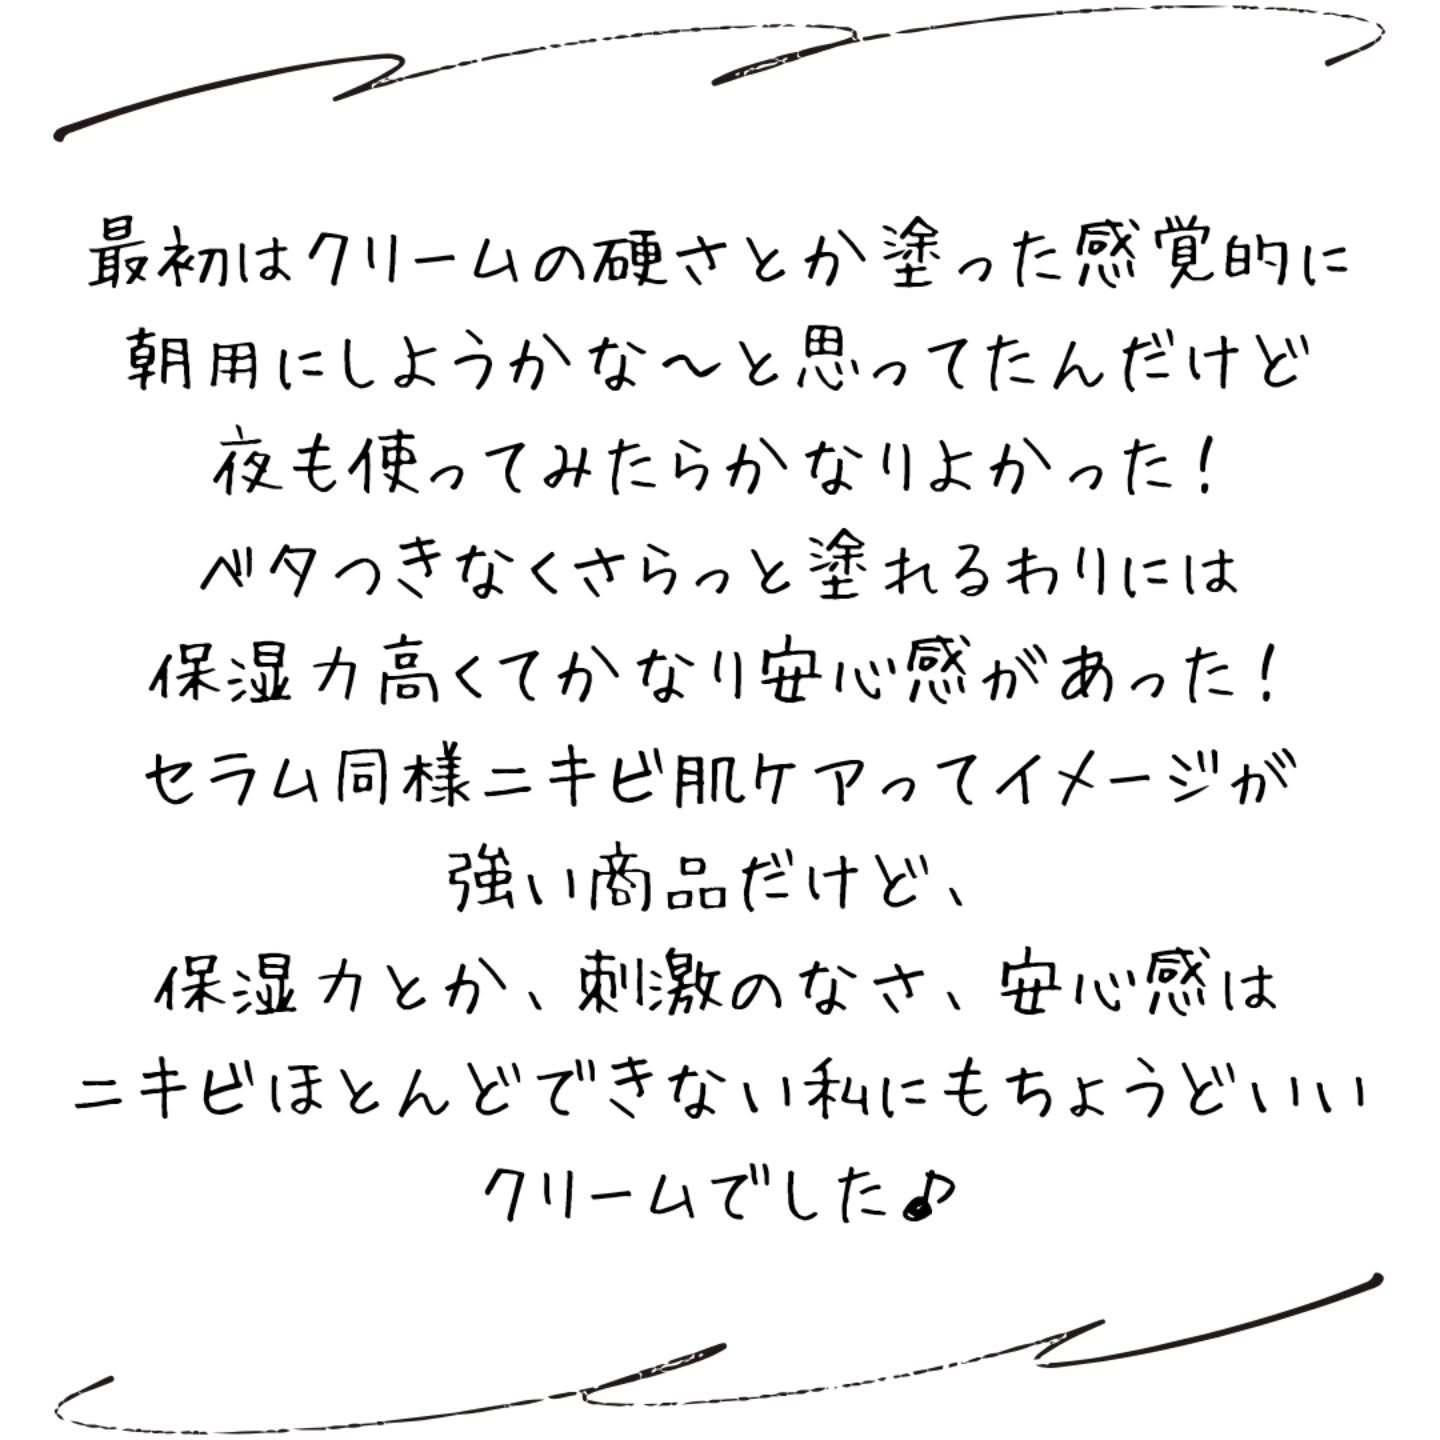 最初はクリームの硬さとか塗った感覚的に
朝用にしようかな〜と思ってたんだけど
夜も使ってみたらかなりよかった！
ベタつきなくさらっと塗れるわりには
保湿力高くてかなり安心感があった！
セラム同様ニキビ肌ケアってイメージが
強い商品だけど、
保湿力とか、刺激のなさ、安心感は
ニキビほとんどできない私にもちょうどいい
クリームでした♪